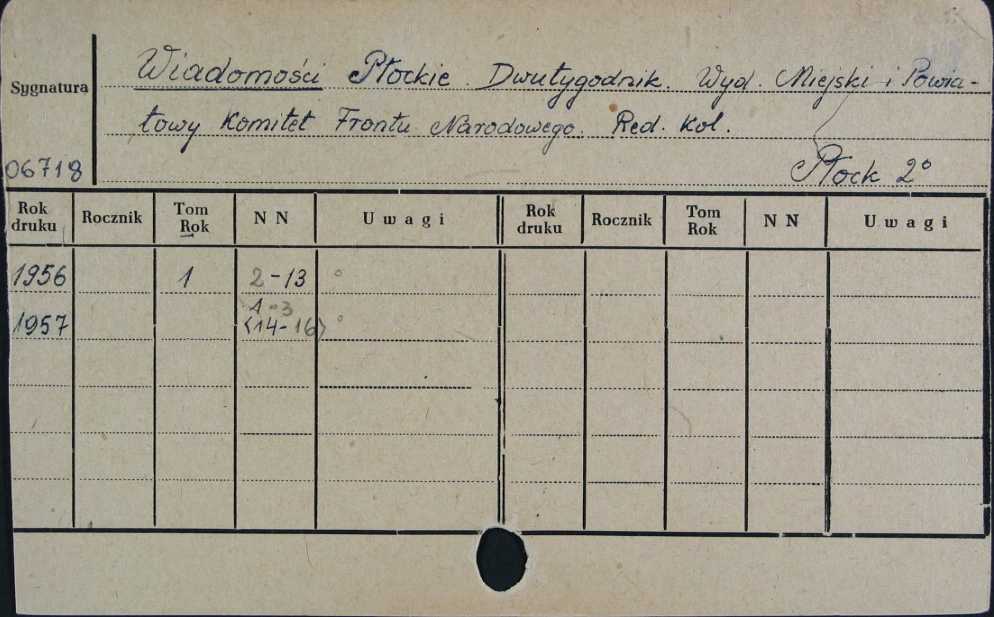 Sygnatura
06718
Wiadomości Płockie. Dwutygodnik. Wyd. Miejski i Powia-
towy Komitet Frontu Narodowego. Red. Kol.
Płock 2°
Rok druku Rocznik Tom Rok N N Uwagi Rok druku Rocznik Tom Rok N N Uwagi
1956 1 2-13 °
1-3
1957 <14-16> °